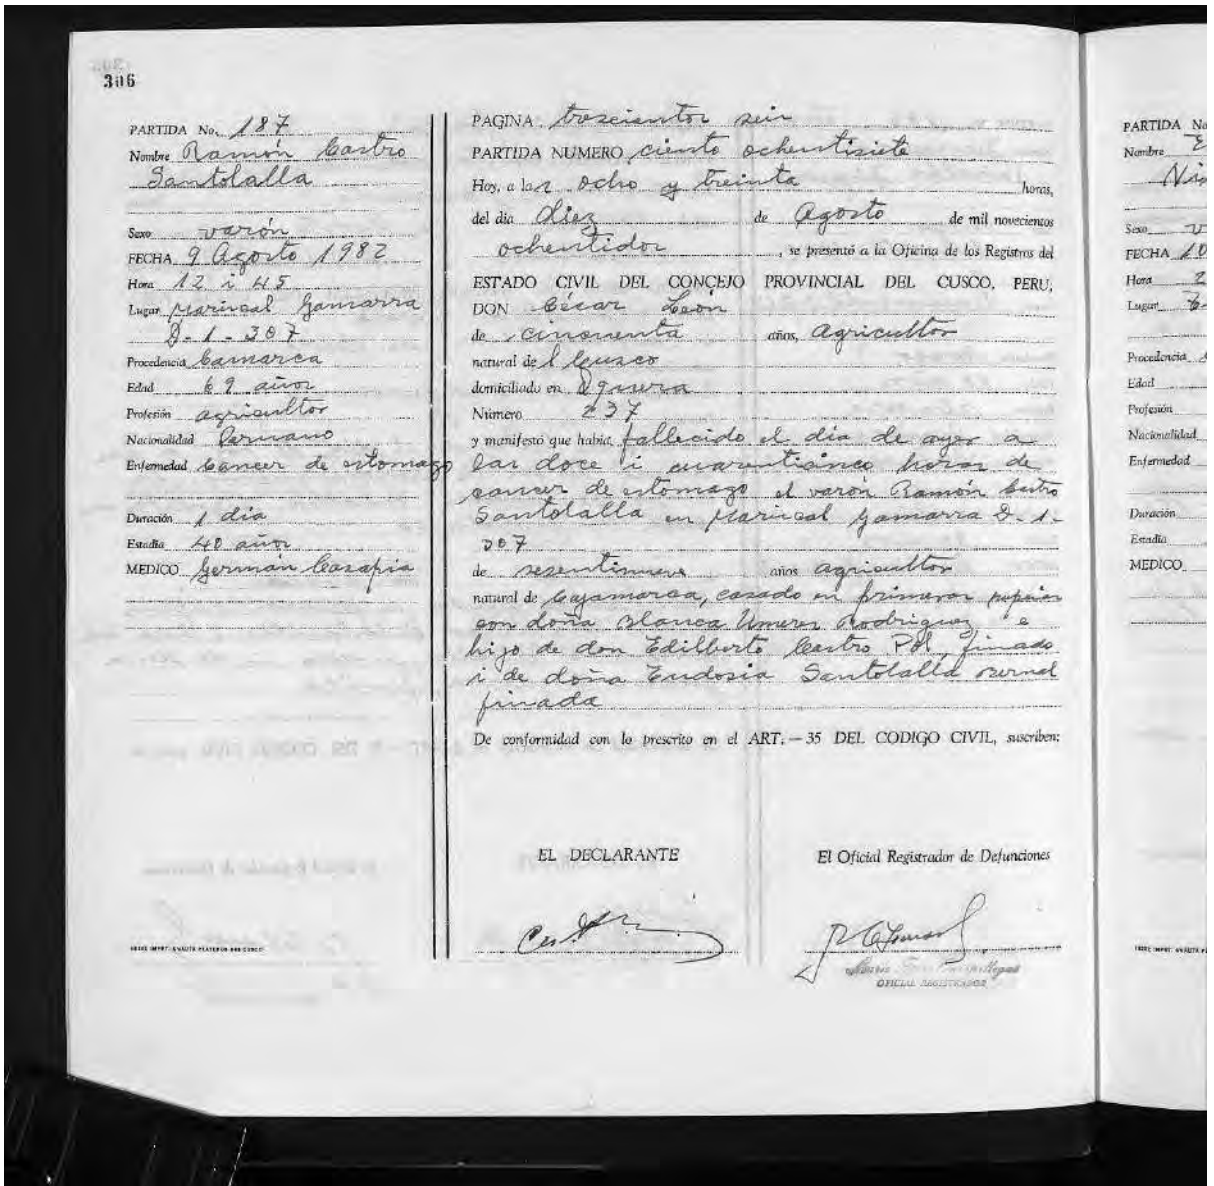 306
PARTIDA No. 187
Nombre Ramón Castro
Santolalla
Sexo varón
FECHA 9 Agosto 1982
Hora 12 i 45
Lugar Mariscal Gamarra
D-1-307
Procedencia Camarca
Edad 69 años
Profesión agricultor
Nacionalidad Peruano
Enfermedad Cancer de estomago
Duración 1 dia
Estadía 40 años
MEDICO Germán Casapia
PAGINA trescientos seis
PARTIDA NUMERO ciento ochentisiete
Hoy, a las ocho y treinta horas,
del dia diez de Agosto de mil novecientos
ochentidos, se presentó a la Oficina de los Registros del
ESTADO CIVIL DEL CONCEJO PROVINCIAL DEL CUSCO, PERU,
DON César León
de cincuenta años, agricultor
natural de l Cuzco
domiciliado en
Número 237
y manifestó que había fallecido el dia de ayer a
las doce i cuarenticinco horas de
cancer de estomago el varón Ramón Castro
Santolalla en Mariscal Gamarra D-1-
307
de sesentinueve años agricultor
natural de Cajamarca, casado en primeras nupcias
con doña Blanca Umeres Rodriguez e
hijo de don Edilberto Castro Pol, finado
i de doña Eudosia Santolalla Bernal
finada
De conformidad con lo prescrito en el ART.—35 DEL CODIGO CIVIL, suscriben:
EL DECLARANTE
El Oficial Registrador de Defunciones
OFICIAL REGISTRADOR
PARTIDA No
Nombre
Sexo
FECHA 10
Hora 2
Lugar
Procedencia
Edad
Profesión
Nacionalidad
Enfermedad
Duración
Estadía
MEDICO